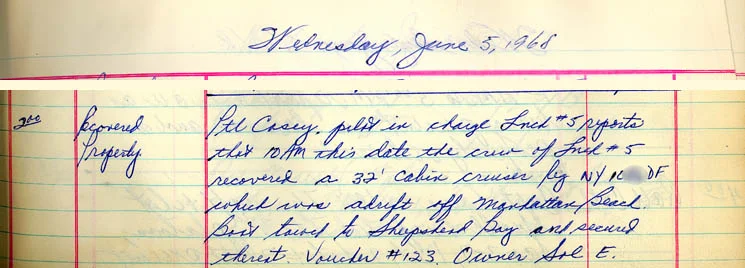 Wednesday, June 5, 1968
200 Recovered Property.
Ptl Casey. pilot in charge Lnch #5 reports
that 10 AM this date the crew of Lnch #5
recovered a 32' cabin cruiser Reg NY DF
which was adrift off Manhattan Beach.
Boat towed to Sheepshead Bay and secured
thereat. Voucher #123. Owner Sol E.